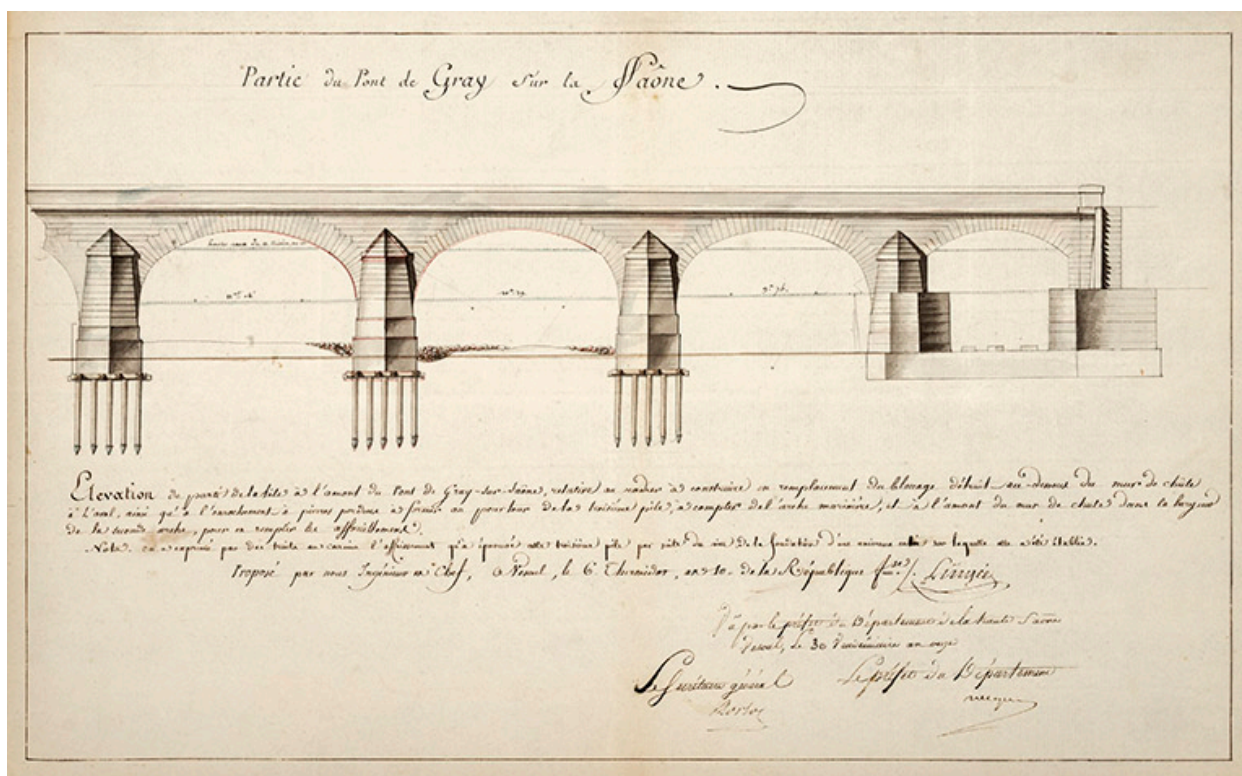 Partie du Pont de Gray sur la Saône.
Elevation de partie de la tête à l'amont du Pont de Gray-sur-Saône, relative au radier à construire en remplacement du blocage détruit au-dessus du mur de chûte
à l'aval, ainsi qu'à l'enrochement à pierres perdues à former au pourtour de la troisième pile, à compter de l'arche marinière, et à l'amont du mur de chute dans la largeur
de la seconde arche, pour en remplir les affouillements.
Nota. on a exprimé par des traits en carmin l'affaissement qu'a éprouvé cette troisième pile par suite du vice de la fondation sur laquelle elle a été établie.
Proposé par nous Ingénieur en Chef, à Vesoul, le 6 Thermidor, an 10 de la République
Vû par le préfet du Département de la haute Saône
Vesoul, le 30 Vendémiaire an onze
Le Secrétaire général
Le préfet du Département